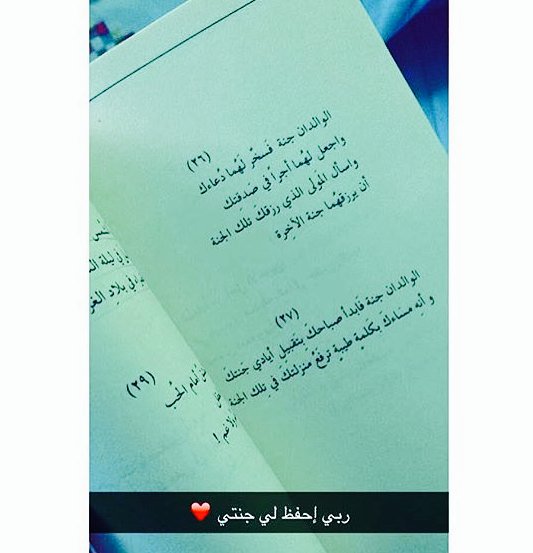 (٢٦)
الوالدان جنة فَسخّر لَهُما دُعاءك
واجعل لهُما أجراً في صَدقتِك
واسأل المَولى الذي رزقكَ تلكَ الجنة
أن يرزقهُما جنة الآخِرة
(٢٧)
الوالدان جنة فَابدأ صباحكَ بتَقبيلِ أيادي جَنتكَ
و أنهِ مساءكَ بكَلمةٍ طيبةٍ ترفَعُ مَنزلتكَ في تِلكَ الجنة
(٢٩)
أنغام الحُب
في ليلة
في بلادِ
ربي إحفظ لي جنتي ❤️